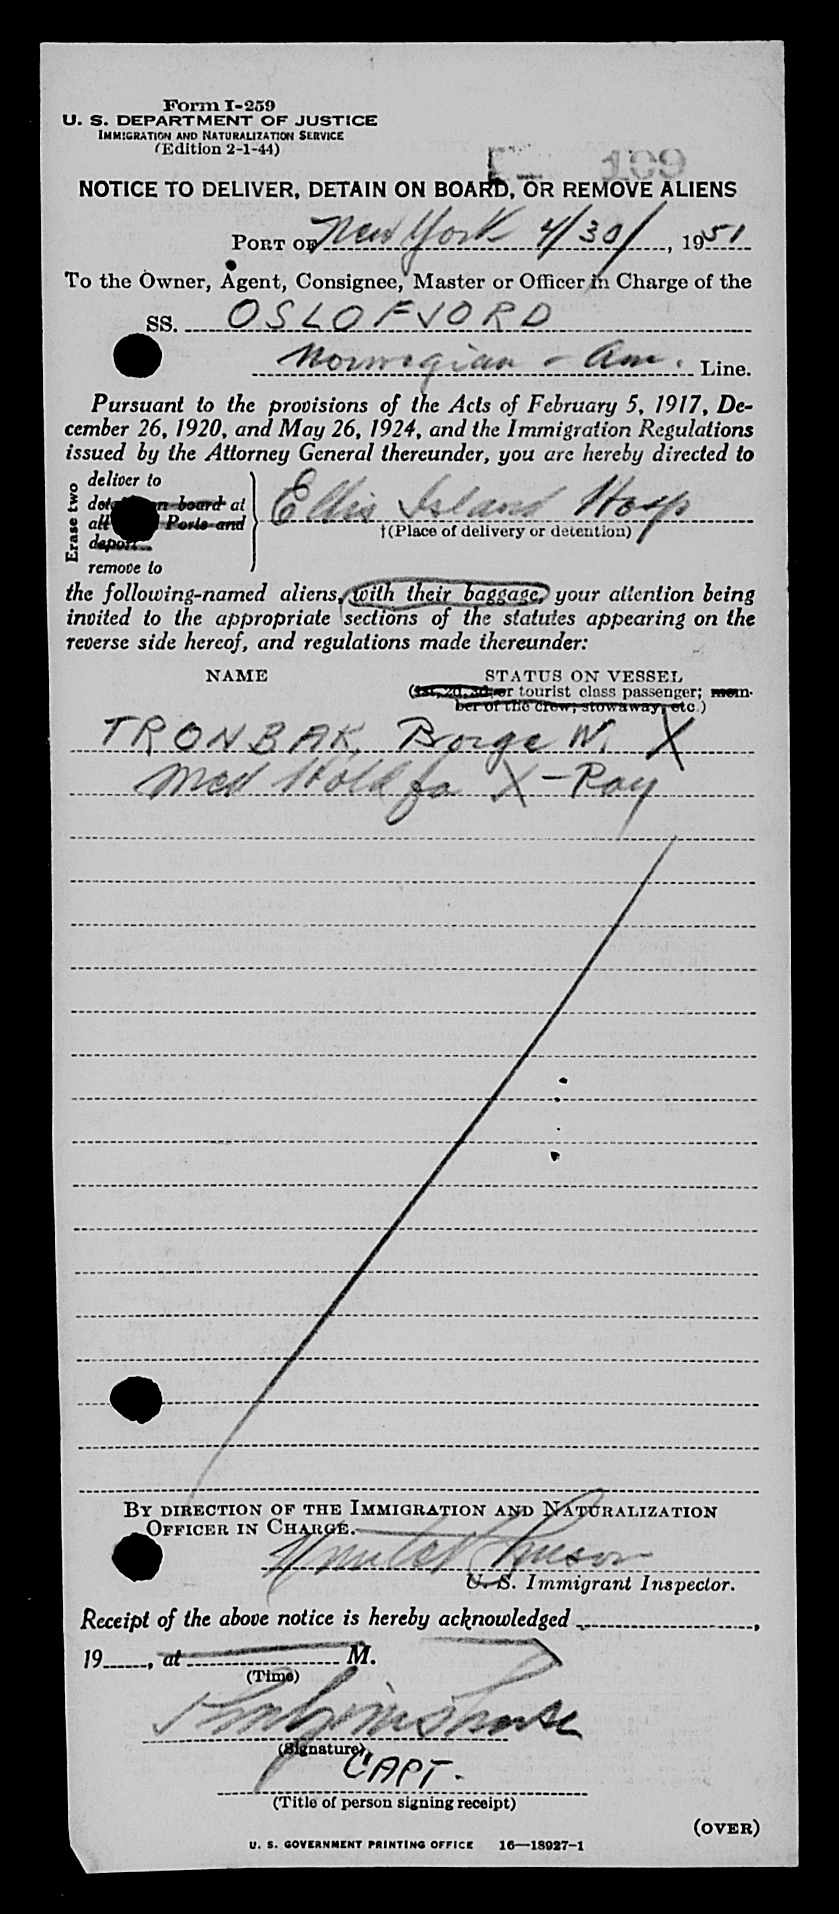 Form I-259
U. S. DEPARTMENT OF JUSTICE
IMMIGRATION AND NATURALIZATION SERVICE
(Edition 2-1-44)
109
NOTICE TO DELIVER, DETAIN ON BOARD, OR REMOVE ALIENS
PORT OF New York 4/30/, 1951
To the Owner, Agent, Consignee, Master or Officer in Charge of the
SS. OSLOFJORD
Norwegian - Am. Line.
Pursuant to the provisions of the Acts of February 5, 1917, De-
cember 26, 1920, and May 26, 1924, and the Immigration Regulations
issued by the Attorney General thereunder, you are hereby directed to
Erase two
deliver to
on board at
all Ports and
deport
remove to
Ellis Island Hosp
†(Place of delivery or detention)
the following-named aliens, with their baggage, your attention being
invited to the appropriate sections of the statutes appearing on the
reverse side hereof, and regulations made thereunder:
NAME STATUS ON VESSEL
(1st, 2d, 3d, or tourist class passenger; mem-
ber of the crew; stowaway, etc.)
TRONBAK, Borge W. X
Med Hold fo X-Ray
BY DIRECTION OF THE IMMIGRATION AND NATURALIZATION
OFFICER IN CHARGE.
U. S. Immigrant Inspector.
Receipt of the above notice is hereby acknowledged ,
19 , at M.
(Time)
(Signature)
CAPT.
(Title of person signing receipt)
(OVER)
U. S. GOVERNMENT PRINTING OFFICE 16—18927-1